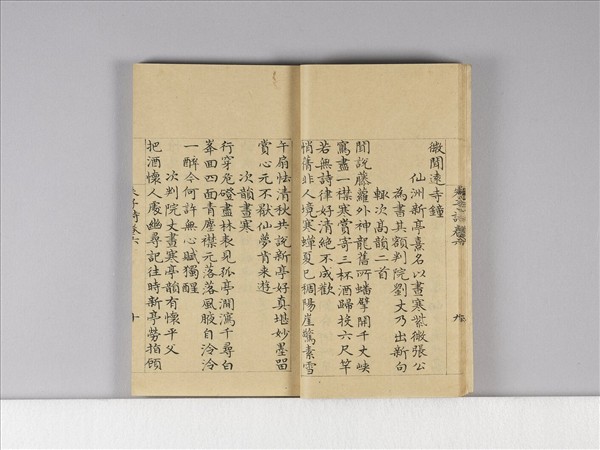 微聞遠寺鐘
仙洲新亭熹名以晝寒紫微張公
為書其額判院劉丈乃出新句
輒次高韻二首
聞說藤蘿外神龍舊所蟠擘開千丈峽
寫盡一襟寒賞寄三杯酒歸投六尺竿
若無詩律好清絕不成歡
悄蒨非人境寒蟬夏已稠陽崖驚素雪
午扇怯清秋共說新亭好真堪妙墨留
賞心元不厭仙夢肯来遊
次韻晝寒
行穿危磴盡林表見孤亭澗瀉千尋白
峯回四面青塵襟元落落風腋自泠泠
一醉今何許無心賦獨醒
次判院丈晝寒亭韻有懷平父
把酒懷人處幽尋記往時新亭勞指顧
朱子詩卷六
十